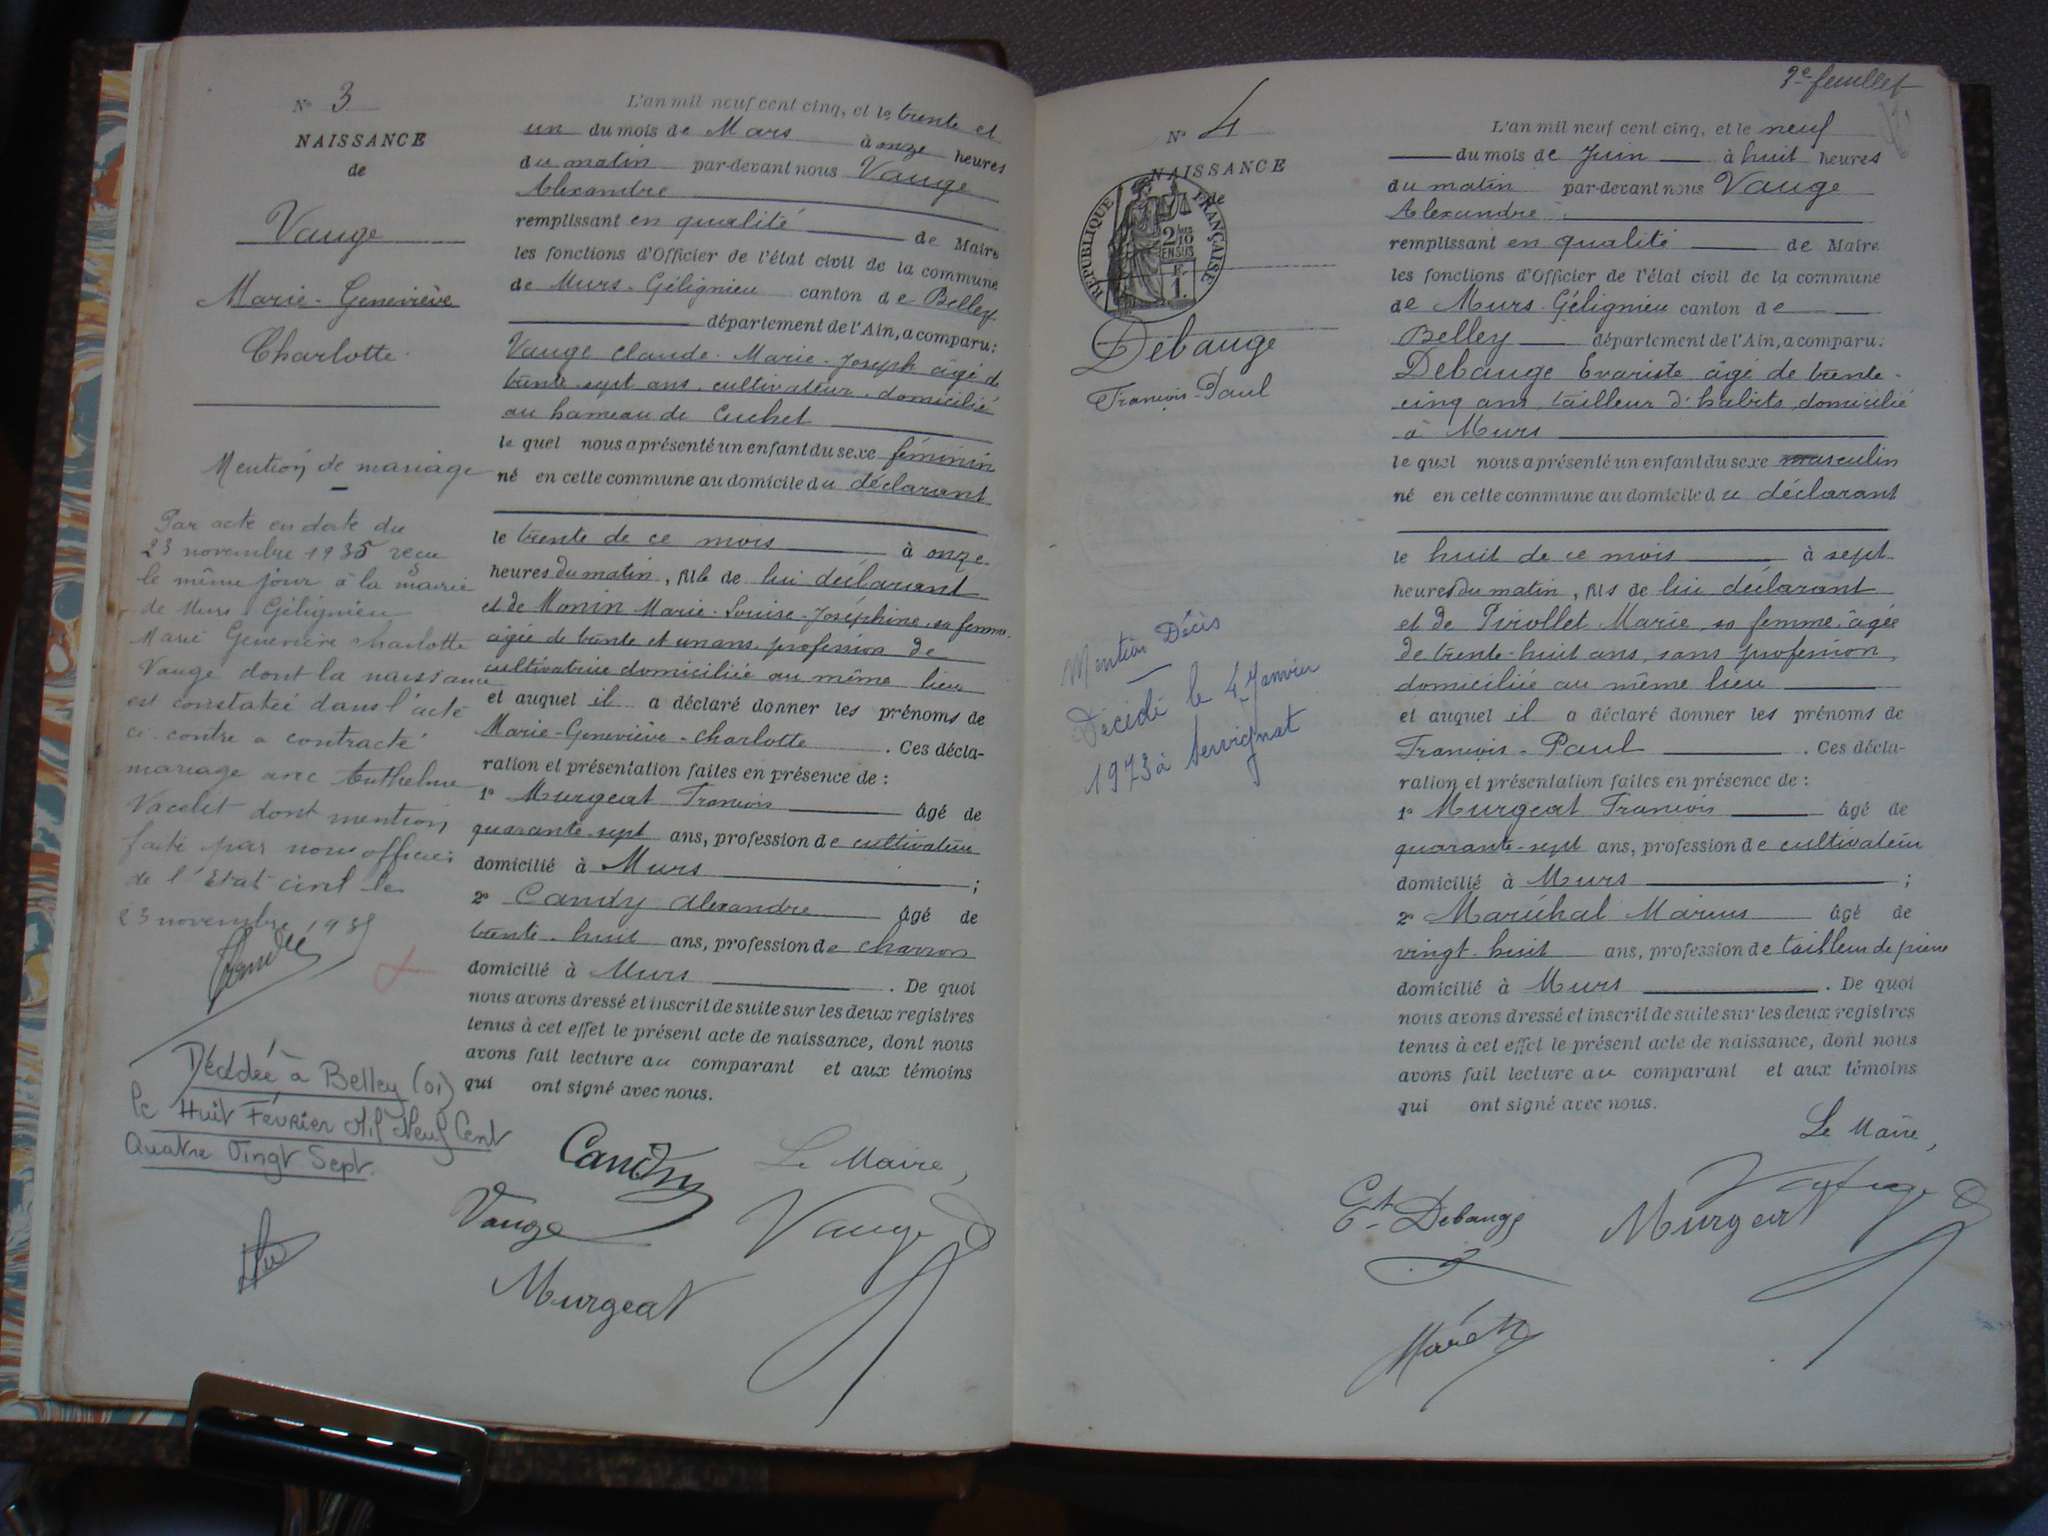 N° 3
NAISSANCE
de
Vauge
Marie-Geneviève
Charlotte
Mention de mariage
Par acte en date du
23 novembre 1935 reçu
le même jour à la mairie
de Murs-Gélignieu
Marie Geneviève Charlotte
Vauge dont la naissance
est constatée dans l'acte
ci-contre a contracté
mariage avec Anthelme
Vacelet dont mention
faite par nous officier
de l'Etat civil le
23 novembre 1935
Décédée à Belley (01)
le Huit Février Mil Neuf Cent
Quatre Vingt Sept.
L'an mil neuf cent cinq, et le trente et
un du mois de Mars à onze heures
du matin par-devant nous Vauge
Alexandre
remplissant en qualité de Maire
les fonctions d'Officier de l'état civil de la commune
de Murs-Gélignieu canton de Belley
département de l'Ain, a comparu:
Vauge Claude-Marie-Joseph âgé de
trente-sept ans, cultivateur, domicilié
au hameau de Cuchet
lequel nous a présenté un enfant du sexe féminin
né en cette commune au domicile du déclarant
le trente de ce mois à onze
heures du matin, fille de lui déclarant
et de Monin Marie-Louise-Joséphine, sa femme,
âgée de trente et un ans, profession de
cultivatrice domiciliée au même lieu
et auquel il a déclaré donner les prénoms de
Marie-Geneviève-Charlotte. Ces décla-
ration et présentation faites en présence de :
1° Murgeat François âgé de
quarante-sept ans, profession de cultivateur
domicilié à Murs ;
2° Candy Alexandre âgé de
trente-huit ans, profession de charron
domicilié à Murs. De quoi
nous avons dressé et inscrit de suite sur les deux registres
tenus à cet effet le présent acte de naissance, dont nous
avons fait lecture au comparant et aux témoins
qui ont signé avec nous.
Candy
Le Maire,
Vauge
Vauge
Murgeat
2e feuillet
N° 4
NAISSANCE
de
RÉPUBLIQUE FRANÇAISE
2/10
EN SUS
F.
1.
Debauge
François-Paul
Mention Décès
Décédé le 4 Janvier
1973 à Servignat
L'an mil neuf cent cinq, et le neuf
du mois de Juin à huit heures
du matin par-devant nous Vauge
Alexandre
remplissant en qualité de Maire
les fonctions d'Officier de l'état civil de la commune
de Murs-Gélignieu canton de
Belley département de l'Ain, a comparu:
Debauge Evariste âgé de trente-
cinq ans, tailleur d'habits, domicilié
à Murs
lequel nous a présenté un enfant du sexe masculin
né en cette commune au domicile du déclarant
le huit de ce mois à sept
heures du matin, fils de lui déclarant
et de Pirollet Marie, sa femme, âgée
de trente-huit ans, sans profession,
domiciliée au même lieu
et auquel il a déclaré donner les prénoms de
François-Paul. Ces décla-
ration et présentation faites en présence de :
1° Murgeat François âgé de
quarante-sept ans, profession de cultivateur
domicilié à Murs ;
2° Maréchal Marius âgé de
vingt-huit ans, profession de tailleur de pierre
domicilié à Murs. De quoi
nous avons dressé et inscrit de suite sur les deux registres
tenus à cet effet le présent acte de naissance, dont nous
avons fait lecture au comparant et aux témoins
qui ont signé avec nous.
Le Maire,
Vauge
Et Debauge
Murgeat